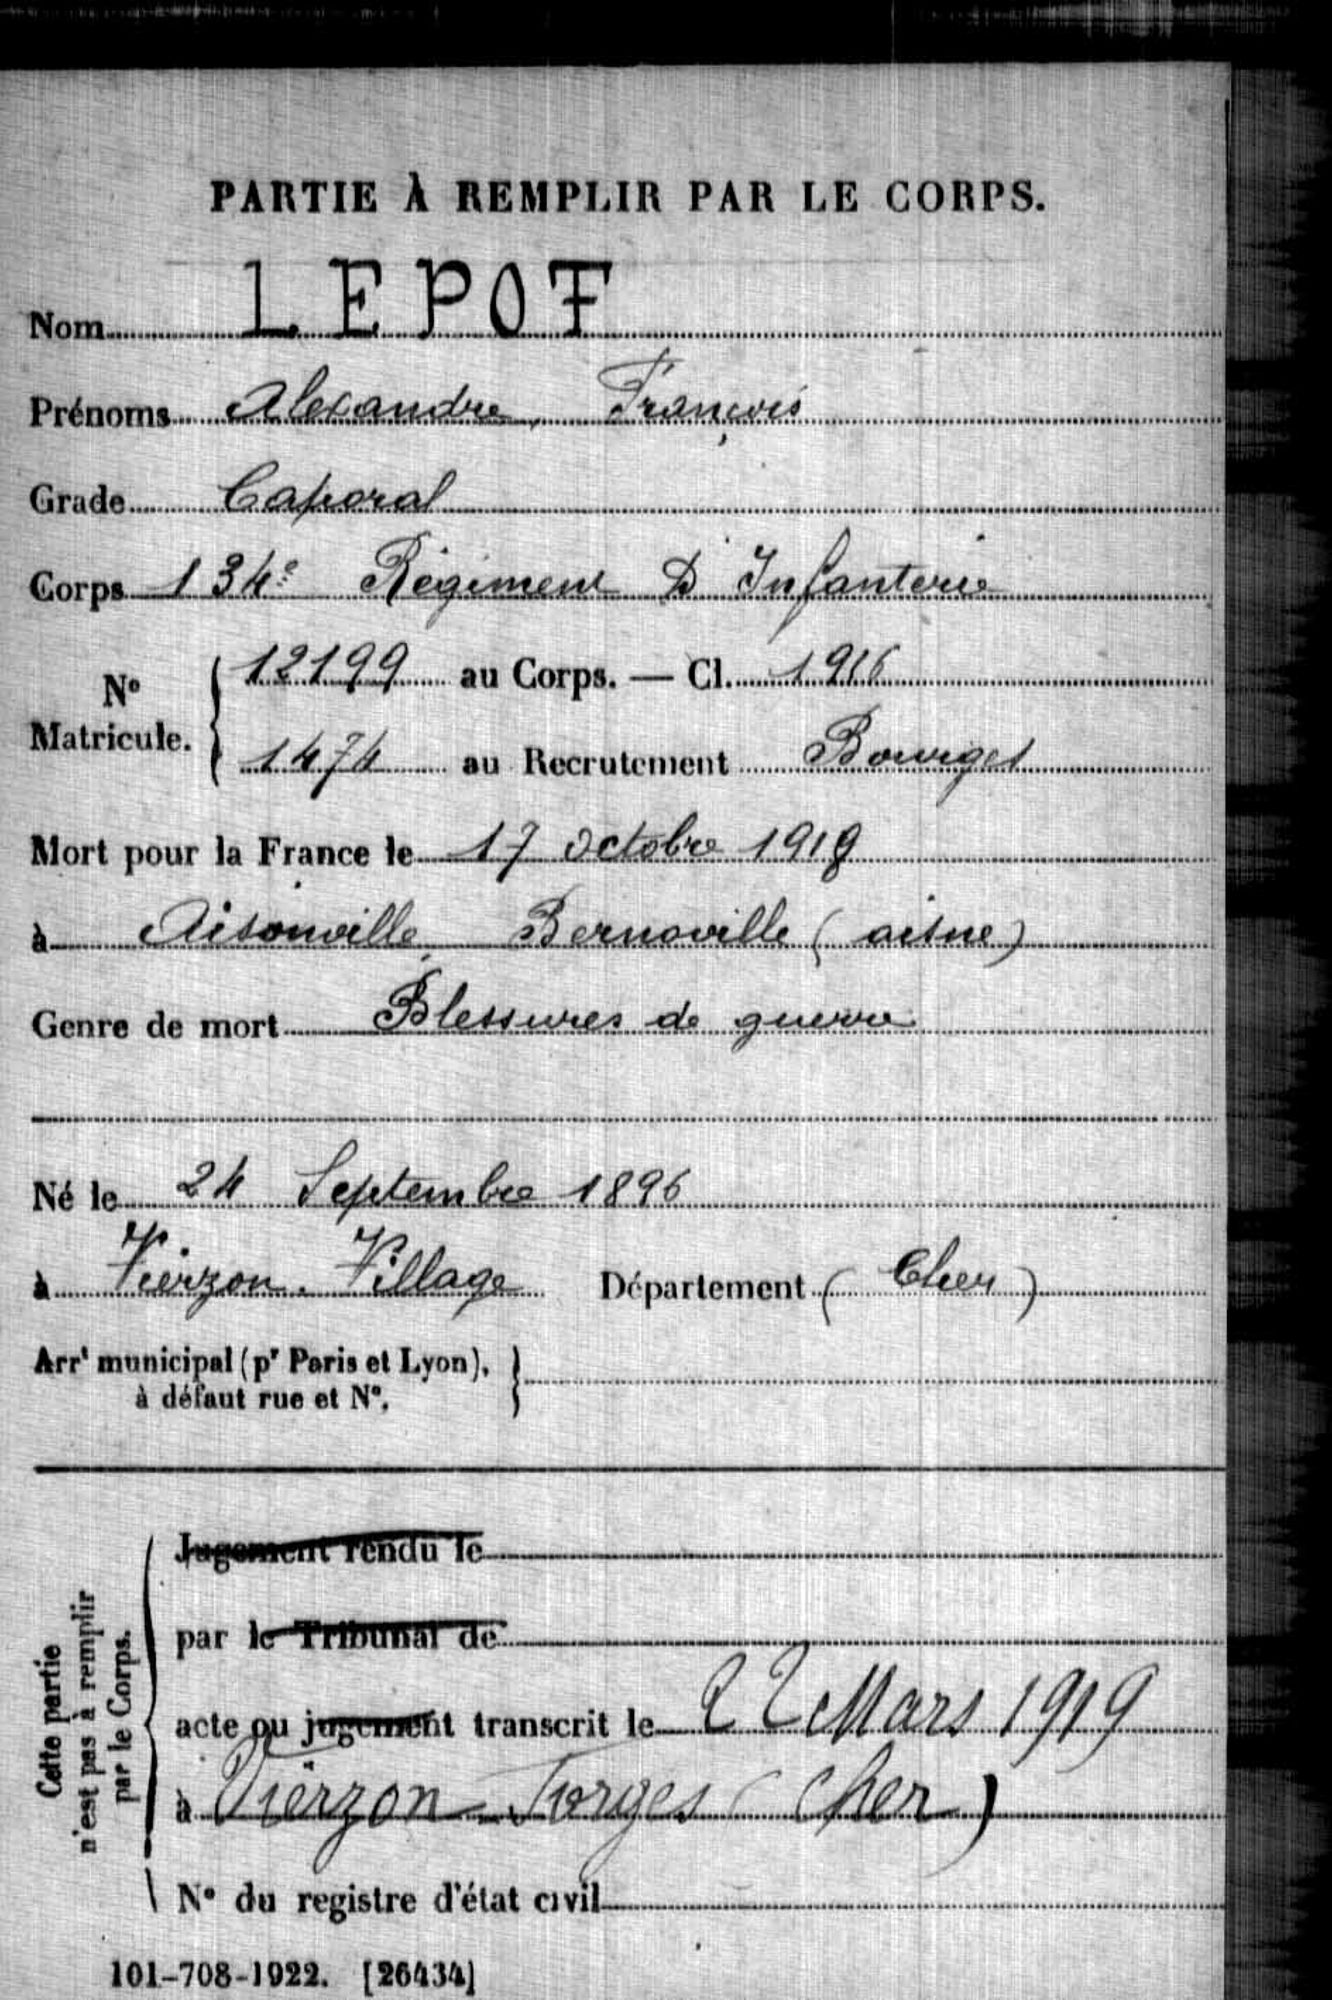 PARTIE À REMPLIR PAR LE CORPS.
Nom LEPOT
Prénoms Alexandre, François
Grade Caporal
Corps 134e Régiment D'Infanterie
No Matricule. { 12199 au Corps. — Cl. 1916
1474 au Recrutement Bourges
Mort pour la France le 17 octobre 1918
à Aisonville Bernoville (aisne)
Genre de mort Blessures de guerre
Né le 24 Septembre 1896
à Vierzon. Village Département (Cher)
Arrt municipal (pr Paris et Lyon), }
à défaut rue et No.
Cette partie n'est pas à remplir par le Corps.
Jugement rendu le
par le Tribunal de
acte ou jugement transcrit le 22 Mars 1919
à Vierzon-Forges (Cher)
No du registre d'état civil
101-708-1922. [26434]